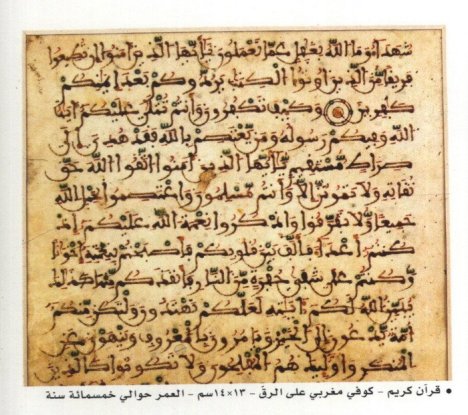 شهداء وما الله بغفل عما تعملون يأيها الذين ءامنوا إن تطيعوا
فريقا من الذين أوتوا الكتب يردوكم بعد إيمنكم
كفرين وكيف تكفرون وأنتم تتلى عليكم ءايت
الله وفيكم رسوله ومن يعتصم بالله فقد هدي إلى
صرط مستقيم يأيها الذين ءامنوا اتقوا الله حق
تقاته ولا تموتن إلا وأنتم مسلمون واعتصموا بحبل الله
جميعا ولا تفرقوا واذكروا نعمة الله عليكم إذ
كنتم أعداء فألف بين قلوبكم فأصبحتم بنعمته إخونا
وكنتم على شفا حفرة من النار فأنقذكم منها كذلك
يبين الله لكم ءايته لعلكم تهتدون ولتكن منكم
أمة يدعون إلى الخير ويأمرون بالمعروف وينهون عن
المنكر وأولئك هم المفلحون ولا تكونوا كالذين
• قرآن كريم - كوفي مغربي على الرق - ١٣×١٤سم - العمر حوالي خمسمائة سنة